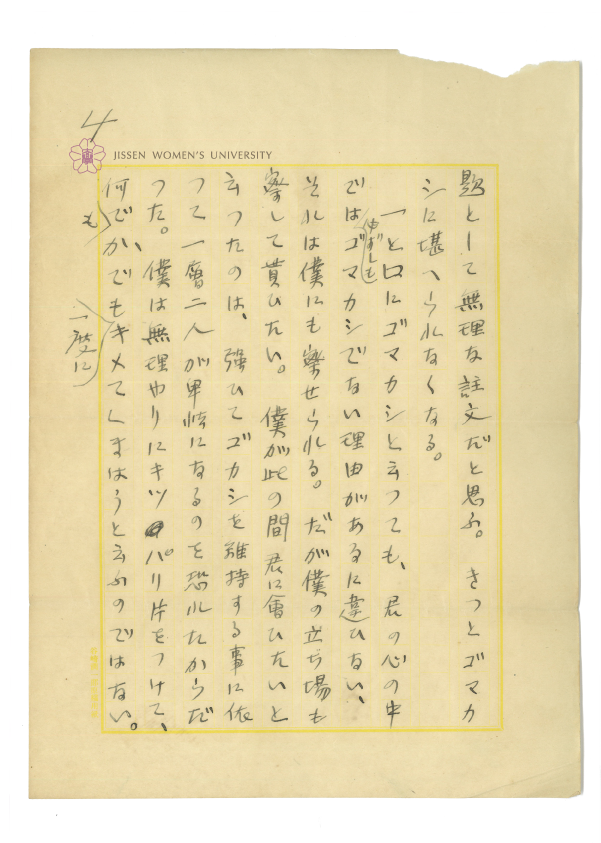 4
JISSEN WOMEN'S UNIVERSITY
題として無理な註文だと思ふ。きつとゴマカ
シに堪へられなくなる。
一と口にゴマカシと云つても、君の心の中
では必ずしもゴマカシでない理由があるに違ひない、
それは僕にも察せられる。だが僕の立ち場も
察して貰ひたい。僕が此の間君に會ひたいと
云つたのは、強ひてゴカシを維持する事に依
つて一層二人が卑怯になるのを恐れたからだ
つた。僕は無理やりにキツパリ片をつけて、
何でもかでも一度にキメてしまはうと云ふのではない。